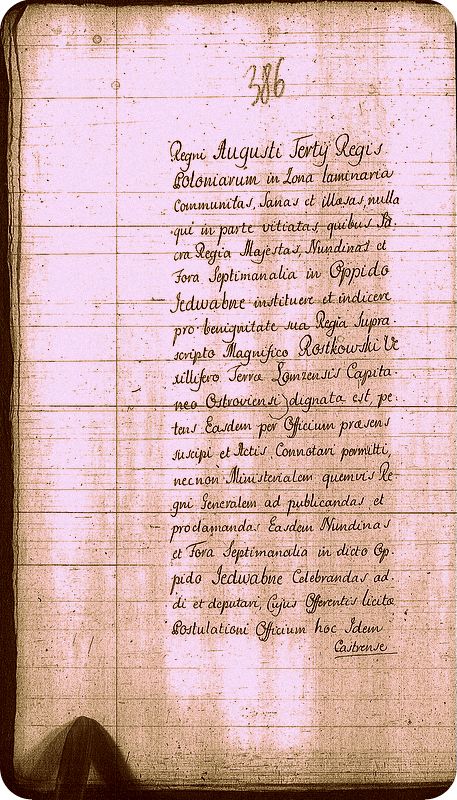 386
Regni Augusti Tertÿ Regis
Poloniarum in Zona laminaria
Communitas, sanas et illæsas, nulla
qui in parte vitiatas, quibus Sa-
cra Regia Majestas, Nundinas et
Fora Septimanalia in Oppido
Jedwabne instituere et indicere
pro benignitate sua Regia supra
scripto Magnifico Rostkowski Ve
xillifero Terræ Lomzensis Capita-
neo Ostroviensi dignata est, pe-
tens Easdem per Officium præsens
suscipi et Actis Connotari permitti,
necnon Ministerialem quemvis Re-
gni Generalem ad publicandas et
proclamandas Easdem Nundinas
et Fora Septimanalia in dicto Op-
pido Jedwabne Celebrandas ad-
di et deputari, Cujus Offerentis licitæ
Postulationi Officium hoc Idem
Castrense